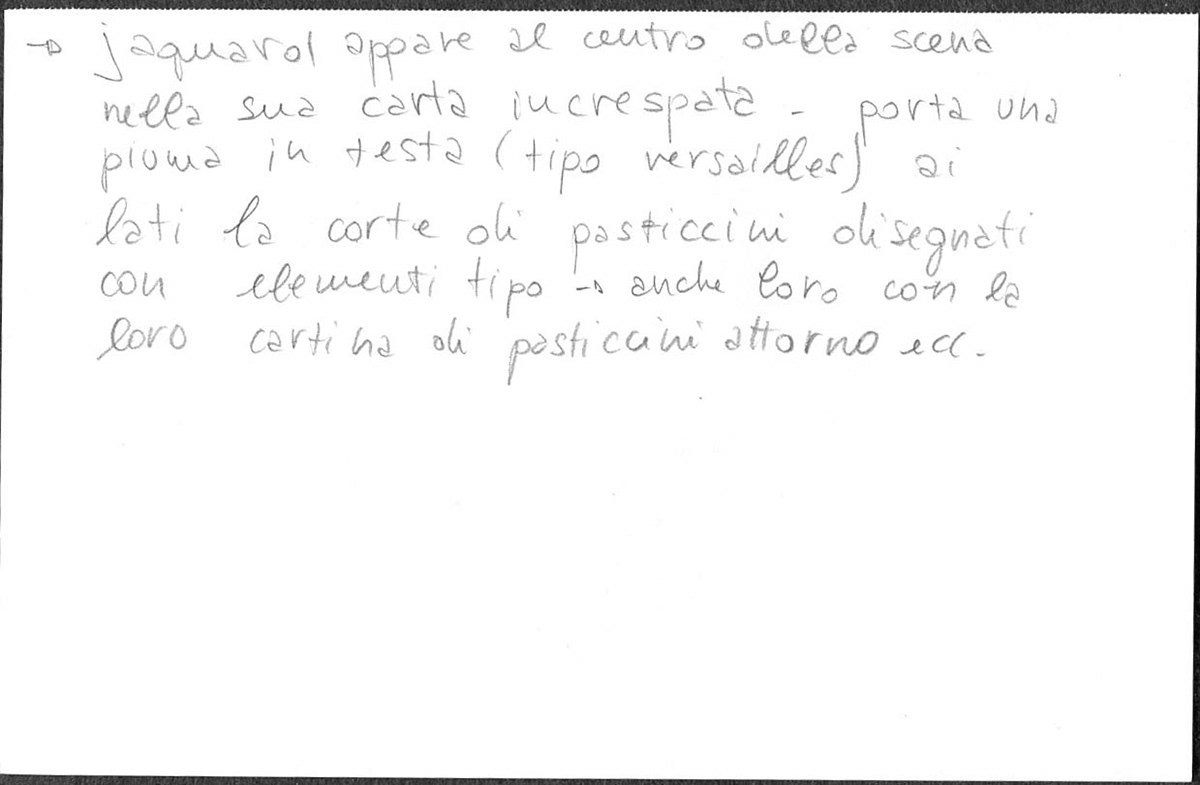 → jaquard appare al centro della scena
nella sua carta increspata - porta una
piuma in testa (tipo versailles) ai
lati la corte di pasticcini disegnati
con elementi tipo → anche loro con la
loro cartina di pasticcini attorno ecc.